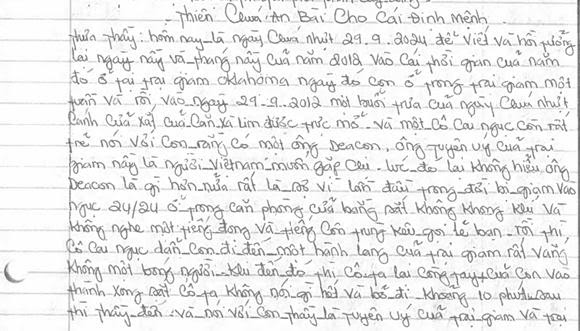 Thiên Chúa An Bài Cho Cái Định Mệnh
thưa thầy: hôm nay là ngày Chúa nhựt 29.9.2024 để viết và hồi tưởng
lại ngày này và tháng này của năm 2012 vào cái thời gian của năm
đó ở tại trại giam oklahoma ngày đó con ở trong trại giam một
tuần và rồi vào ngày 29-9-2012 một buổi trưa của ngày Chúa nhựt
Cánh cửa sắt của căn xà lim được mở và một cô cai ngục còn rất
trẻ nói với con rằng có một ông Deacon, ông tuyên úy của trại
giam này là người Vietnam muốn gặp lúc đó lại không hiểu ông
Deacon là gì hơn nữa rất là sợ vì lần đầu trong đời bị giam vào
ngục 24/24 ở trong căn phòng cửa bằng sắt không không khí và
không nghe một tiếng động và tiếng côn trùng kêu gọi lẻ bạn rồi thì
cô cai ngục dẫn con đi đến một hành lang của trại giam rất vắng
không một bóng người khi đến đó thì cô ta lại còng tay con vào
thành song sắt cô ta không nói gì hết và bỏ đi. Khoảng 10 phút sau
thì thầy đến và nói với con thầy là tuyên úy của trại giam và trại